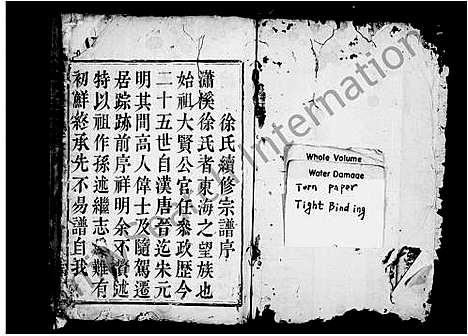 徐氏續修宗譜序
瀟溪徐氏者東海之望族也
始祖大賢公官任叅政歷今
二十五世自漢唐晉迄宋元
明其間高人偉士及隨駕遷
居踪跡前序祥明余不贅述
特以祖作孫述繼志 難有
初鮮終承先不易譜自我
Whole Volume
Water Damage
Torn paper
Tight Binding
International